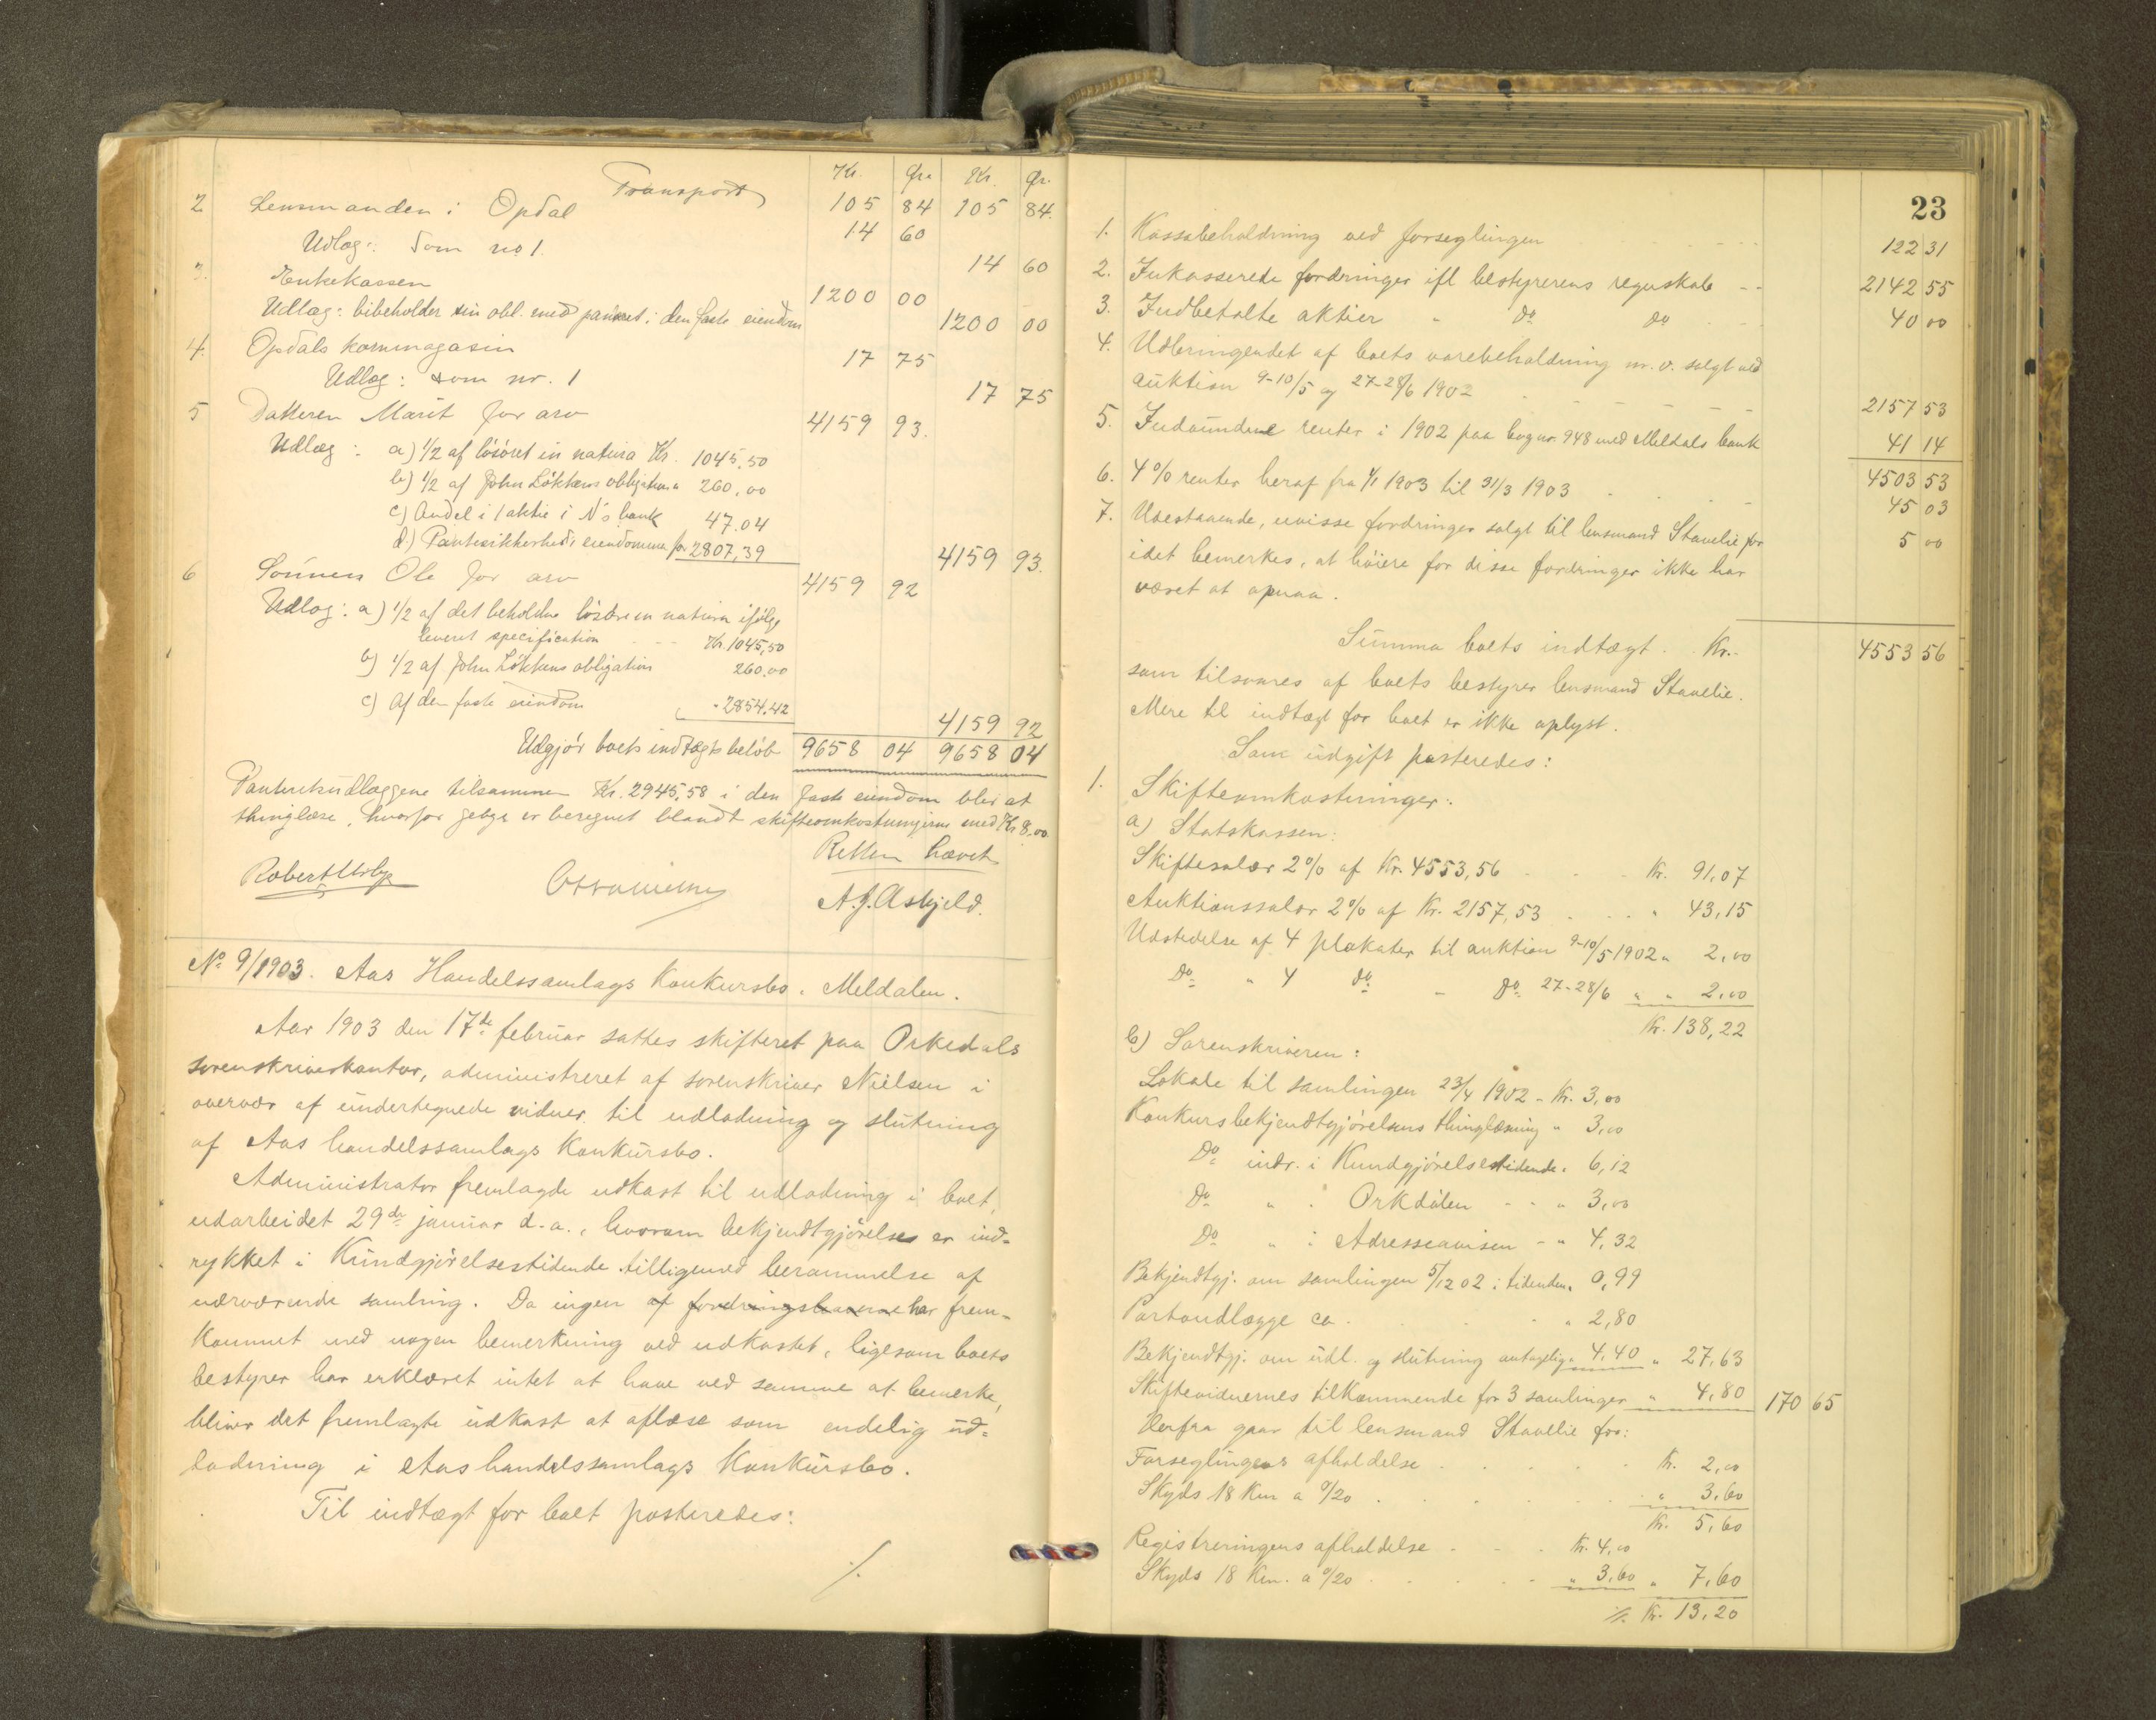 Kr. Ør. Kr. Ør.
Transport 105 84 105 84.
2 Lensmanden i Opdal 14 60
Udlæg: Som no 1. 14 60
3. Enkekassen 1200 00
Udlæg: bibeholder sin obl. med panteret i den faste eiendom 1200 00
4. Opdals kornmagasin 17 75
Udlæg: som nr. 1 17 75
5 Datteren Marit for arv 4159 93.
Udlæg: a) 1/2 af løsøret in natura Kr. 1045,50
b) 1/2 af John Løkkens obligation " 260,00
c) Andel i 1 aktie i N's bank 47.04
d) Pantesikkerhed i eiendommen for 2807,39 4159 93.
6 Sønnen Ole for arv 4159 92
Udlæg: a) 1/2 af det beholdne løsøre in natura ifølge
leveret specification Kr. 1045,50
b) 1/2 af John Løkkens obligation 260.00
c) Af den faste eiendom - 2854.42 4159 92
Udgjør boets indtægtsbeløb 9658 04 9658 04
Panteretsudlæggene tilsammen Kr. 2945,58 i den faste eiendom blir at
thinglæse, hvorfor gebyr er beregnet blandt skifteomkostningerne med Kr 8,00.
Retten hævet
A. J. Askjeld.
No 9/1903. Aas Handelssamlags Konkursbo. Meldalen.
Aar 1903 den 17de februar sattes skifteret paa Orkedals
sorenskriverkontor, administreret af sorenskriver Nielsen i
overvær af undertegnede vidner til udlodning og slutning
af Aas handelssamlags Konkursbo.
Administrator fremlagde udkast til udlodning i boet,
udarbeidet 29de januar d.a., hvorom bekjendtgjørelse er ind-
rykket i Kundgjørelsestidende tilligemed berammelse af
nærværende samling. Da ingen af fordringshaverne har frem-
kommet med nogen bemerkning ved udkastet, ligesom boets
bestyrer har erklæret intet at have ved samme at bemerke,
bliver det fremlagte udkast at aflæse som endelig ud-
lodning i Aas handelssamlags Konkursbo.
Til indtægt for boet posteredes:
./.
23
1. Kassabeholdning ved forseglingen 122 31
2. Inkasserede fordringer ifl bestyrerens regnskab -- 2142 55
3. Indbetalte aktier - do do 40 00
4. Udbringendet af boets varebeholdning m. v. solgt ved
auktion 9-10/5 og 27-28/6 1902 2157 53
5. Indvundne renter i 1902 paa bog nr. 948 med Meldals bank 41 14
4503 53
6. 4% renter heraf fra 1/1 1903 til 31/3 1903 45 03
7. Udestaaende, uvisse fordringer solgt til lensmand Stavelie for 5 00
idet bemerkes, at høiere for disse fordringer ikke har
været at opnaa.
Summa boets indtægt. Kr. 4553 56
som tilsvares af boets bestyrer lensmand Stavelie.
Mere til indtægt for boet er ikke oplyst.
Som udgift posteredes:
1. Skifteomkostninger:
a) Statskassen:
Skiftesalær 2% af Kr. 4553,56 Kr. 91,07
Auktionssalær 2% af Kr. 2157,53 " 43,15
Udstedelse af 4 plakater til auktion 9-10/5 1902 " 2,00
Do " 4 do - do 27-28/6 " " 2,00
Kr. 138,22
b) Sorenskriveren:
Lokale til samlingen 23/4 1902 - Kr. 3,00
Konkursbekjendtgjørelsens thinglæsning " 3,00
Do indr. i Kundgjørelsestidende " 6,12
Do " " Orkdølen - - " 3,00
Do " i Adresseavisen - " 4,32
Bekjendtgj. om samlingen 5/12 02 i tidenden " 0,99
Portoudlægge ca. " 2,80
Bekjendtgj. om udl. og slutning antagelig " 4,40 " 27,63
Skiftevidnernes tilkommende for 3 samlinger " 4,80 170 65
Herfra gaar til lensmand Stavelie for:
Forseglingens afholdelse Kr. 2,00
Skyds 18 Km a 0/20 " 3,60
Kr. 5,60
Registreringens afholdelse - Kr. 4,00
Skyds 18 Km. a 0/20 - " 3,60 " 7,60
./. Kr. 13,20